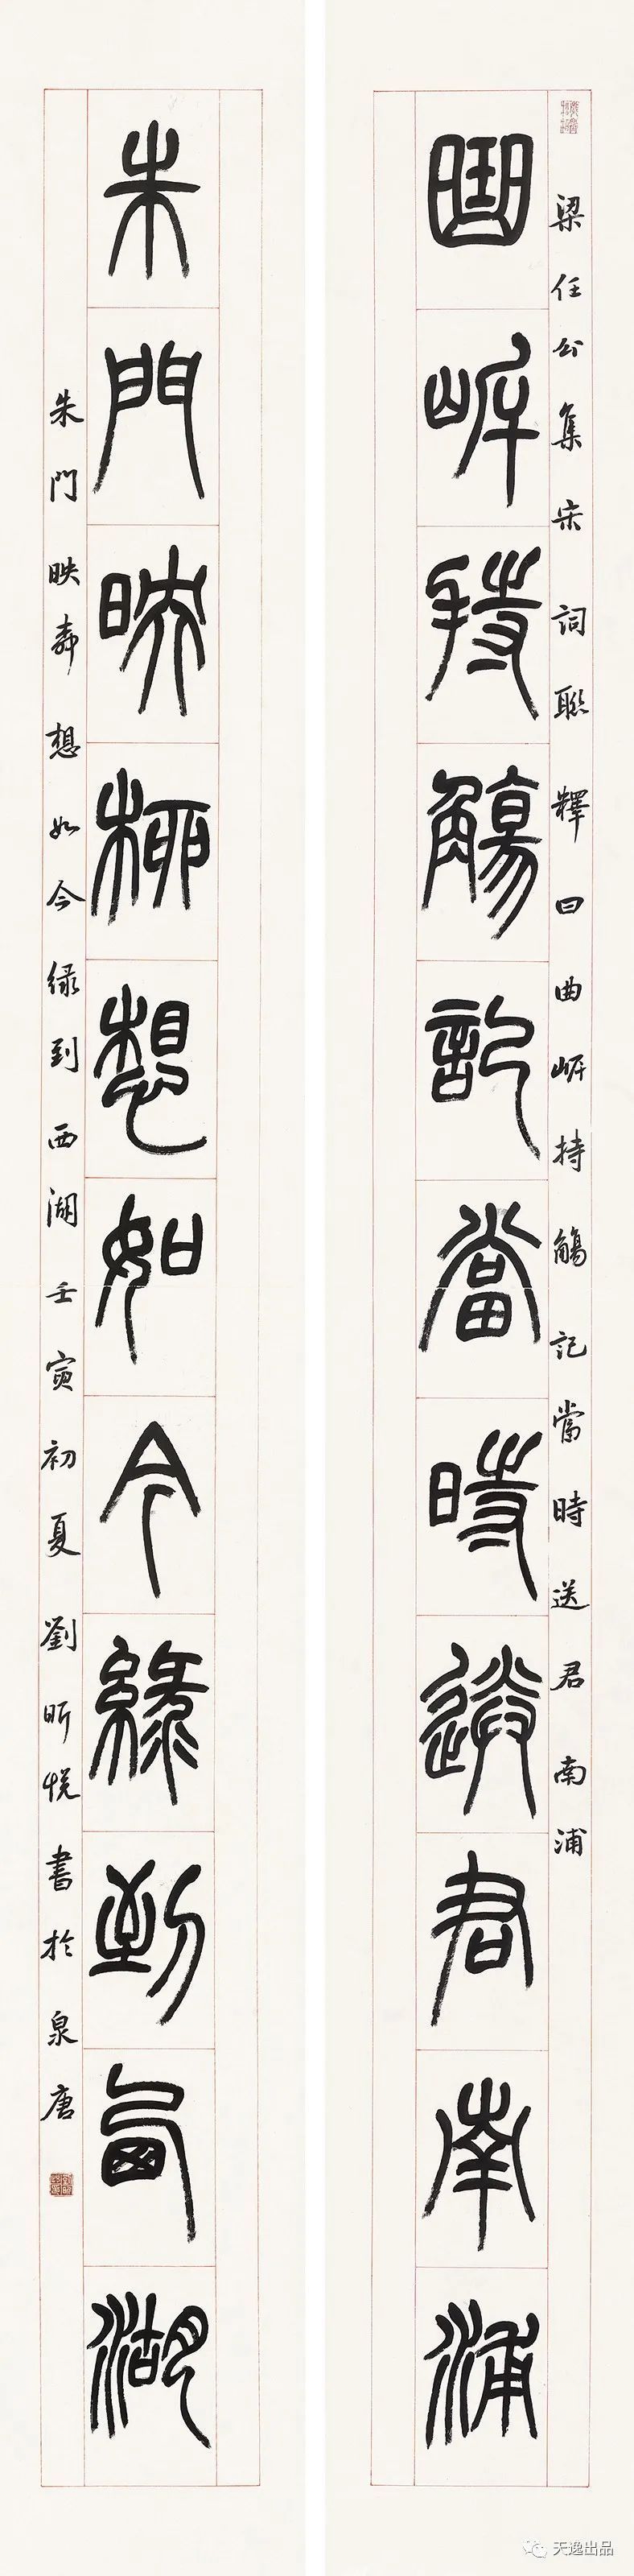 梁任公集宋詞聯釋曰曲岸持觴記當時送君南浦
曲岸持觴記當時送君南浦
朱門映柳想如今綠到西湖
朱門映柳想如今緑到西湖壬寅初夏劉昕悅書於泉唐
天逸出品